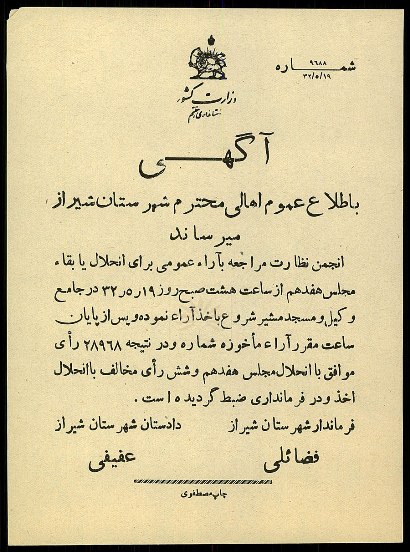 شماره ۹۶۸۸
۳۲/۵/۱۹
وزارت کشور
آگهی
باطلاع عموم اهالی محترم شهرستان شیراز
میرساند
انجمن نظارت مراجعه بآراء عمومی برای انحلال یا بقاء
مجلس هفدهم از ساعت هشت صبح روز ۳۲ر۵ر۱۹ در جامع
وکیل و مسجد مشیر شروع باخذ آراء نموده و پس از پایان
ساعت مقرر آراء مأخوزه شماره و در نتیجه ۲۸۹۶۸ رأی
موافق با انحلال مجلس هفدهم و شش رأی مخالف با انحلال
اخذ و در فرمانداری ضبط گردیده است.
فرماندار شهرستان شیراز دادستان شهرستان شیراز
فضائلی عفیفی
چاپ مصطفوی